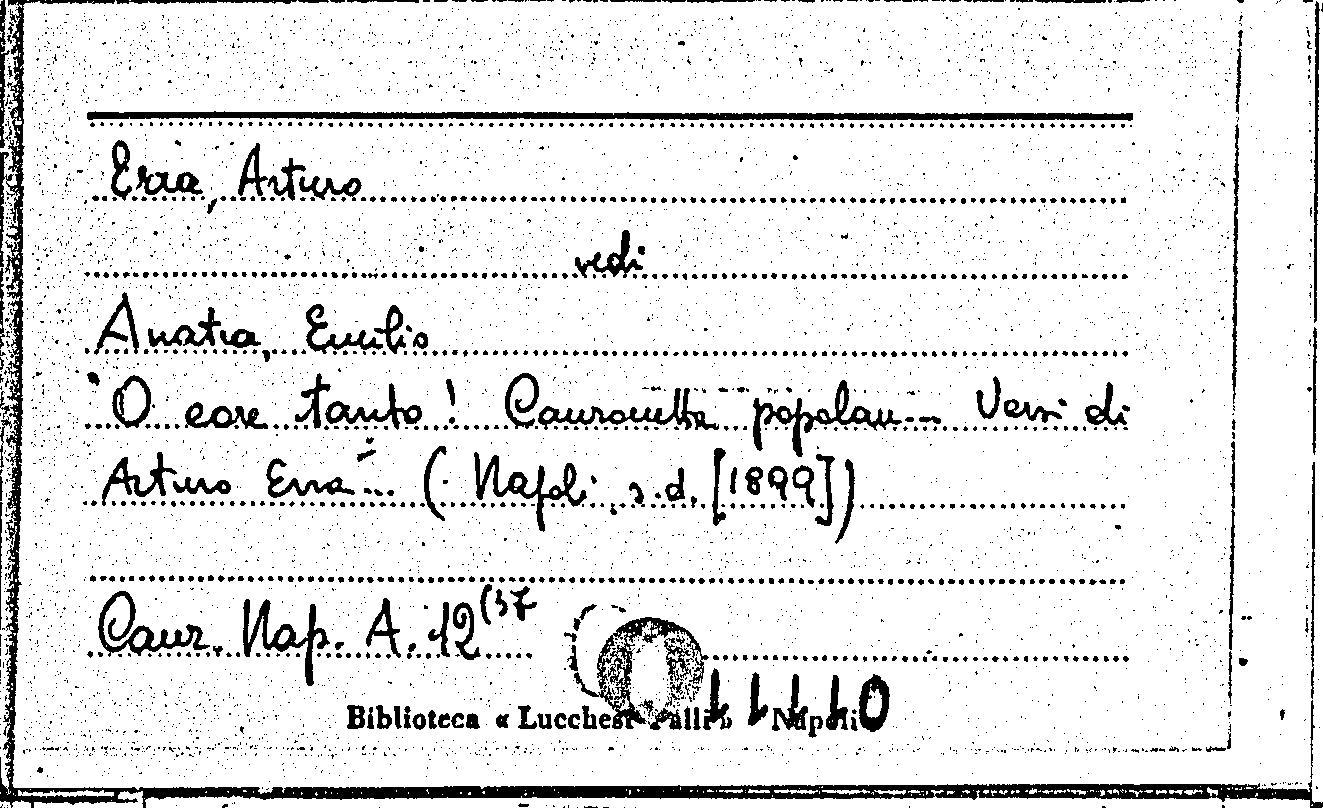 Erra, Arturo
vedi
Anatra, Emilio
'O core tanto! Canzonetta popolare... Versi di
Arturo Erra... (Napoli, s.d. [1899])
Canz. Nap. A. 12(37
Biblioteca « Lucchesi Palli » Napoli
11110